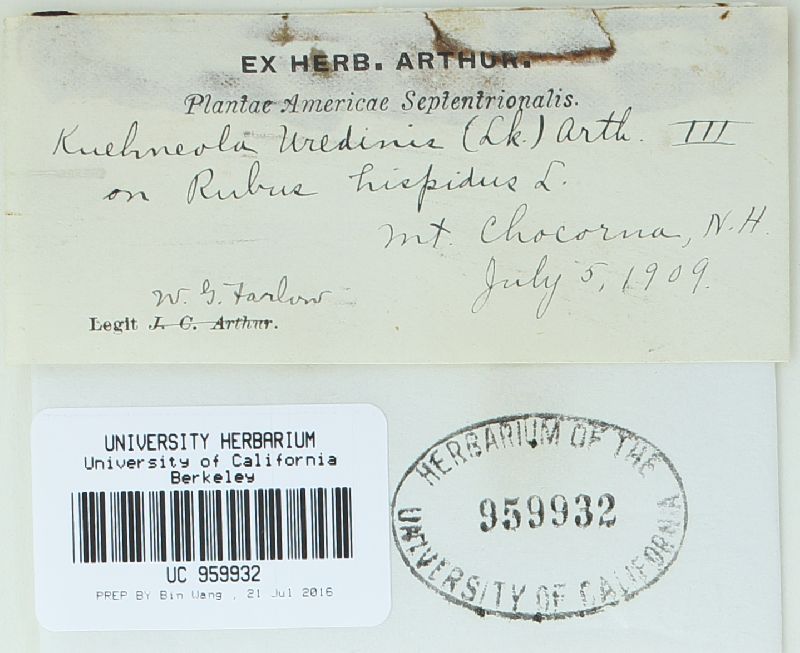 EX HERB. ARTHUR.
Plantae Americae Septentrionalis.
Kuehneola Uredinis (Lk.) Arth. III
on Rubus hispidus L.
Mt. Chocorua, N.H.
July 5, 1909.
W. G. Farlow
Legit J. C. Arthur.
UNIVERSITY HERBARIUM
University of California
Berkeley
UC 959932
PREP BY Bin Wang , 21 Jul 2016
HERBARIUM OF THE
959932
UNIVERSITY OF CALIFORNIA